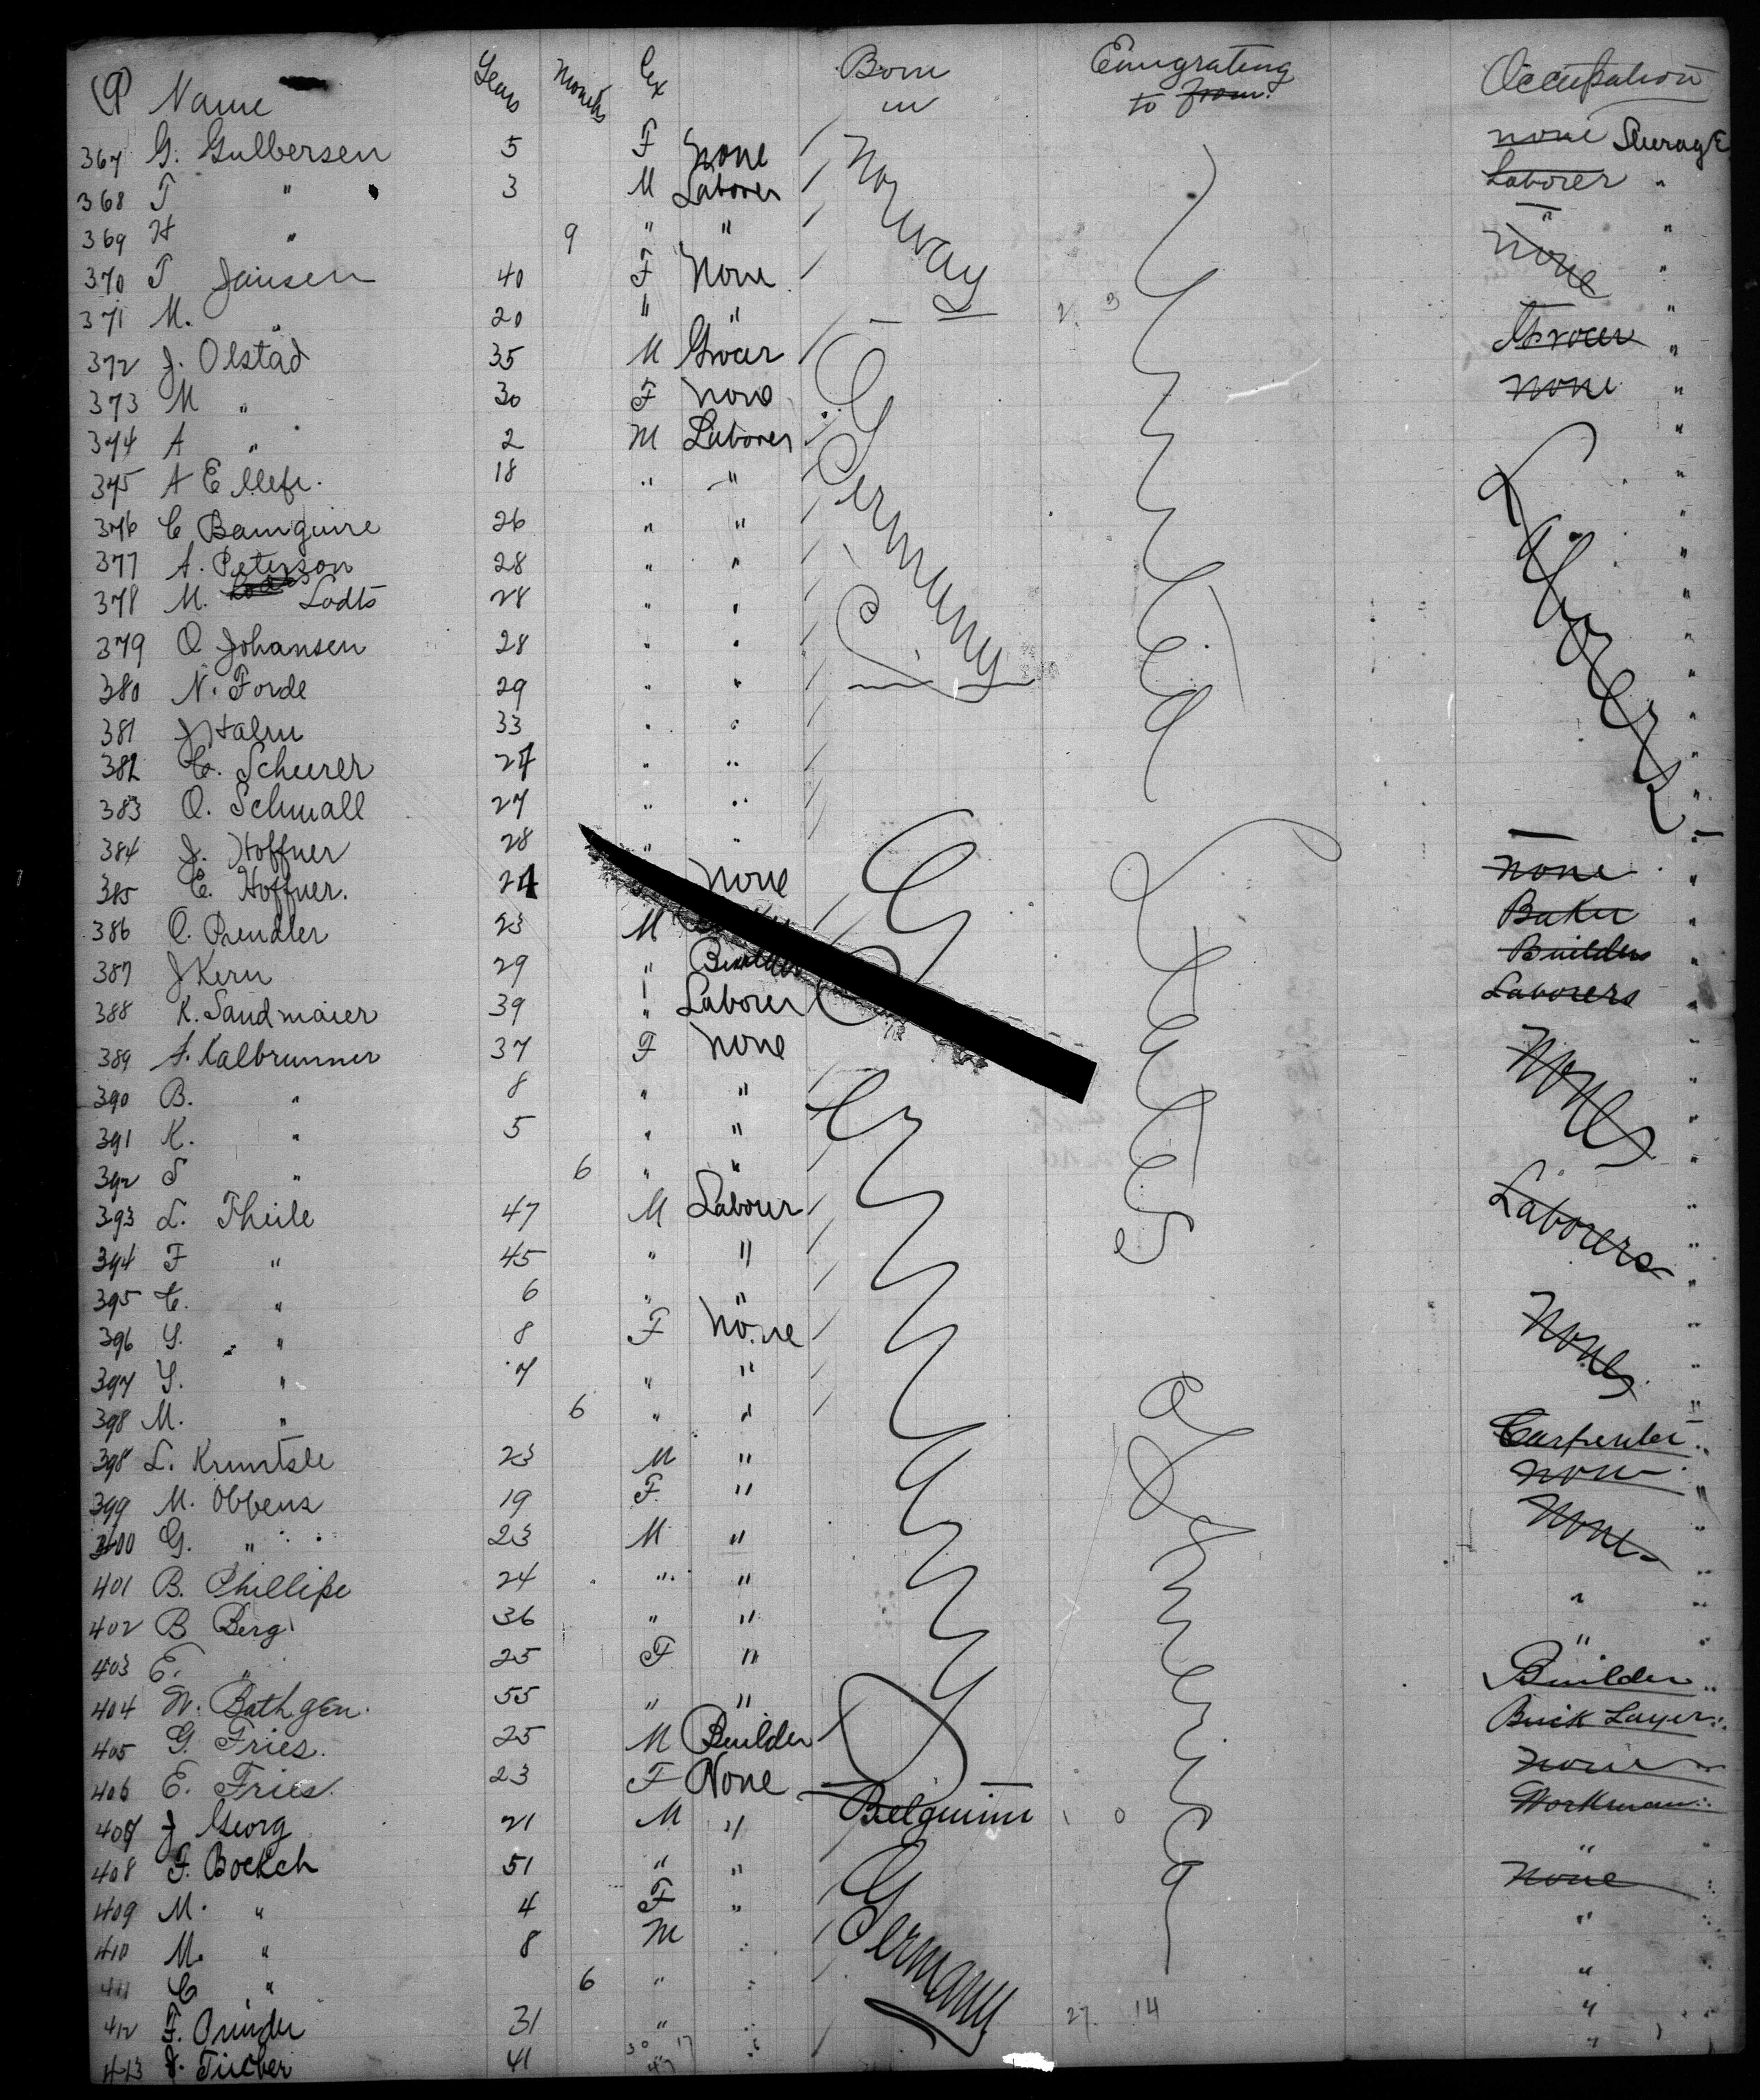 (9) Name Years Months Sex Born in Emigrating to from. Occupation
367 G. Gulbersen 5 F None none Steerage
368 T " 3 M Laborer Laborer "
369 H " 9 " " " "
370 T Jansen 40 F None none "
371 M. " 20 " " "
372 J. Olstad 35 M Grocer Grocer "
373 M " 30 F None none "
374 A " 2 M Laborer "
375 A 18 " " "
376 C Bamguire 26 " " "
377 A. Peterson 28 " " "
378 M. Lodts 28 " " "
379 O Johansen 28 " " "
380 N. Forde 29 " " "
381 J Halm 33 " " "
382 C. Scheerer 24 " " "
383 O. Schmall 27 " " "
384 J. Hoffner 28 " " "
385 C. Hoffner. 24 None none "
386 C. Rendler 23 M Baker "
387 J Kern 29 " Builder Builders "
388 K. Sandmaier 39 " Laborer Laborers "
389 A. Kalbrunner 37 F None None "
390 B. " 8 " " "
391 K. " 5 " " "
392 S " 6 " " "
393 L. Theile 47 M Laborer Laborers "
394 F " 45 " " "
395 C. " 6 " " "
396 Y. " 8 F None None "
397 Y. " 7 " " "
398 M. " 6 " " "
398 L. 23 M " Carpenter "
399 M. Obbens 19 F. " none "
400 G. " 23 M " None "
401 B. Phillipe 24 " " " "
402 B Berg 36 " " " "
403 E. " 25 F " "
404 W. Bathgen. 55 " " Builder "
405 G. Fries. 25 M Builder Brick Layer "
406 E. Fries. 23 F None none "
407 J Georg 21 M " Belguim 1 0 Workman "
408 F. Boekch 51 " " " "
409 M. " 4 F " none "
410 M. " 8 M " " "
411 C " 6 " " "
412 F. 31 " " 27. 14 "
413 41 " " "
Norway
Germany
United
States
of
America
Laborer
Germany
Germany